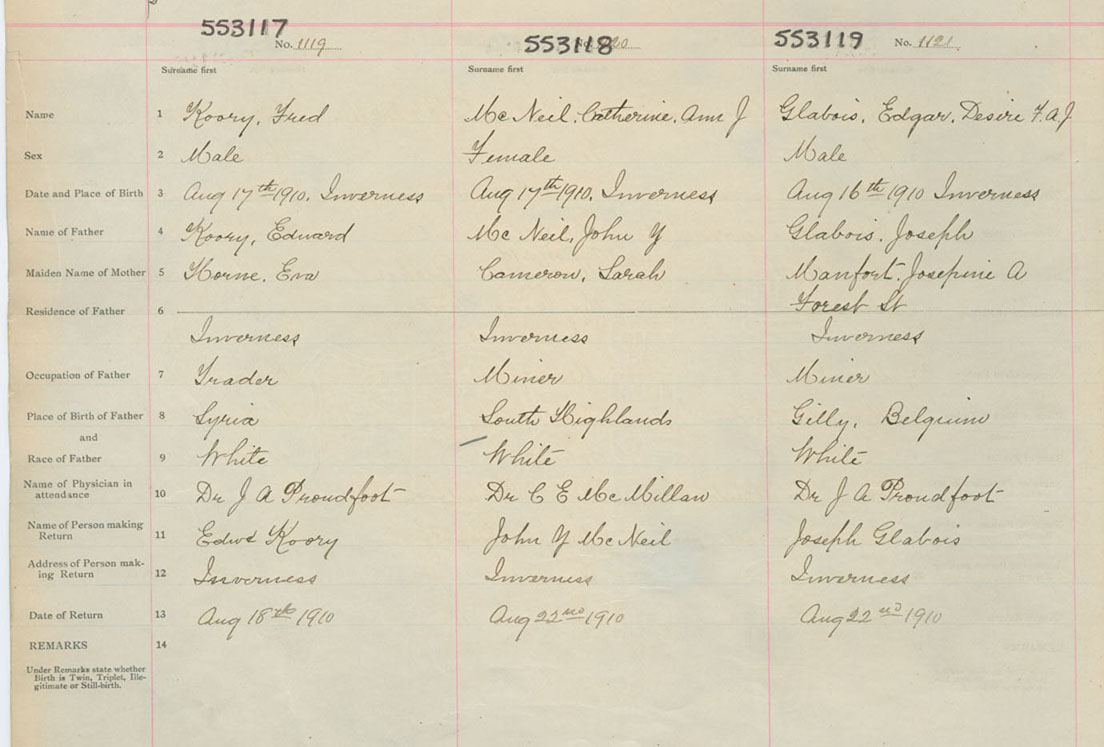 553117 No. 1119 553118 20 553119 No. 1121
Surname first Surname first Surname first
Name 1 Koory, Fred Mc Neil, Catherine, Ann J Glabois, Edgar, Desire F. A. J
Sex 2 Male Female Male
Date and Place of Birth 3 Aug 17th 1910, Inverness Aug 17th 1910, Inverness Aug 16th 1910 Inverness
Name of Father 4 Koory, Edward Mc Neil, John Y Glabois, Joseph
Maiden Name of Mother 5 Horne, Eva Cameron, Sarah Manfort, Josepine A
Forest St
Residence of Father 6
Inverness Inverness Inverness
Occupation of Father 7 Trader Miner Miner
Place of Birth of Father 8 Syria South Highlands Gilly, Belgium
and
Race of Father 9 White White White
Name of Physician in
attendance 10 Dr J A Proudfoot Dr C E Mc Millan Dr J A Proudfoot
Name of Person making
Return 11 Edwd Koory John Y Mc Neil Joseph Glabois
Address of Person mak-
ing Return 12 Inverness Inverness Inverness
Date of Return 13 Aug 18th 1910 Aug 22nd 1910 Aug 22nd 1910
REMARKS 14
Under Remarks state whether
Birth is Twin, Triplet, Ille-
gitimate or Still-birth.